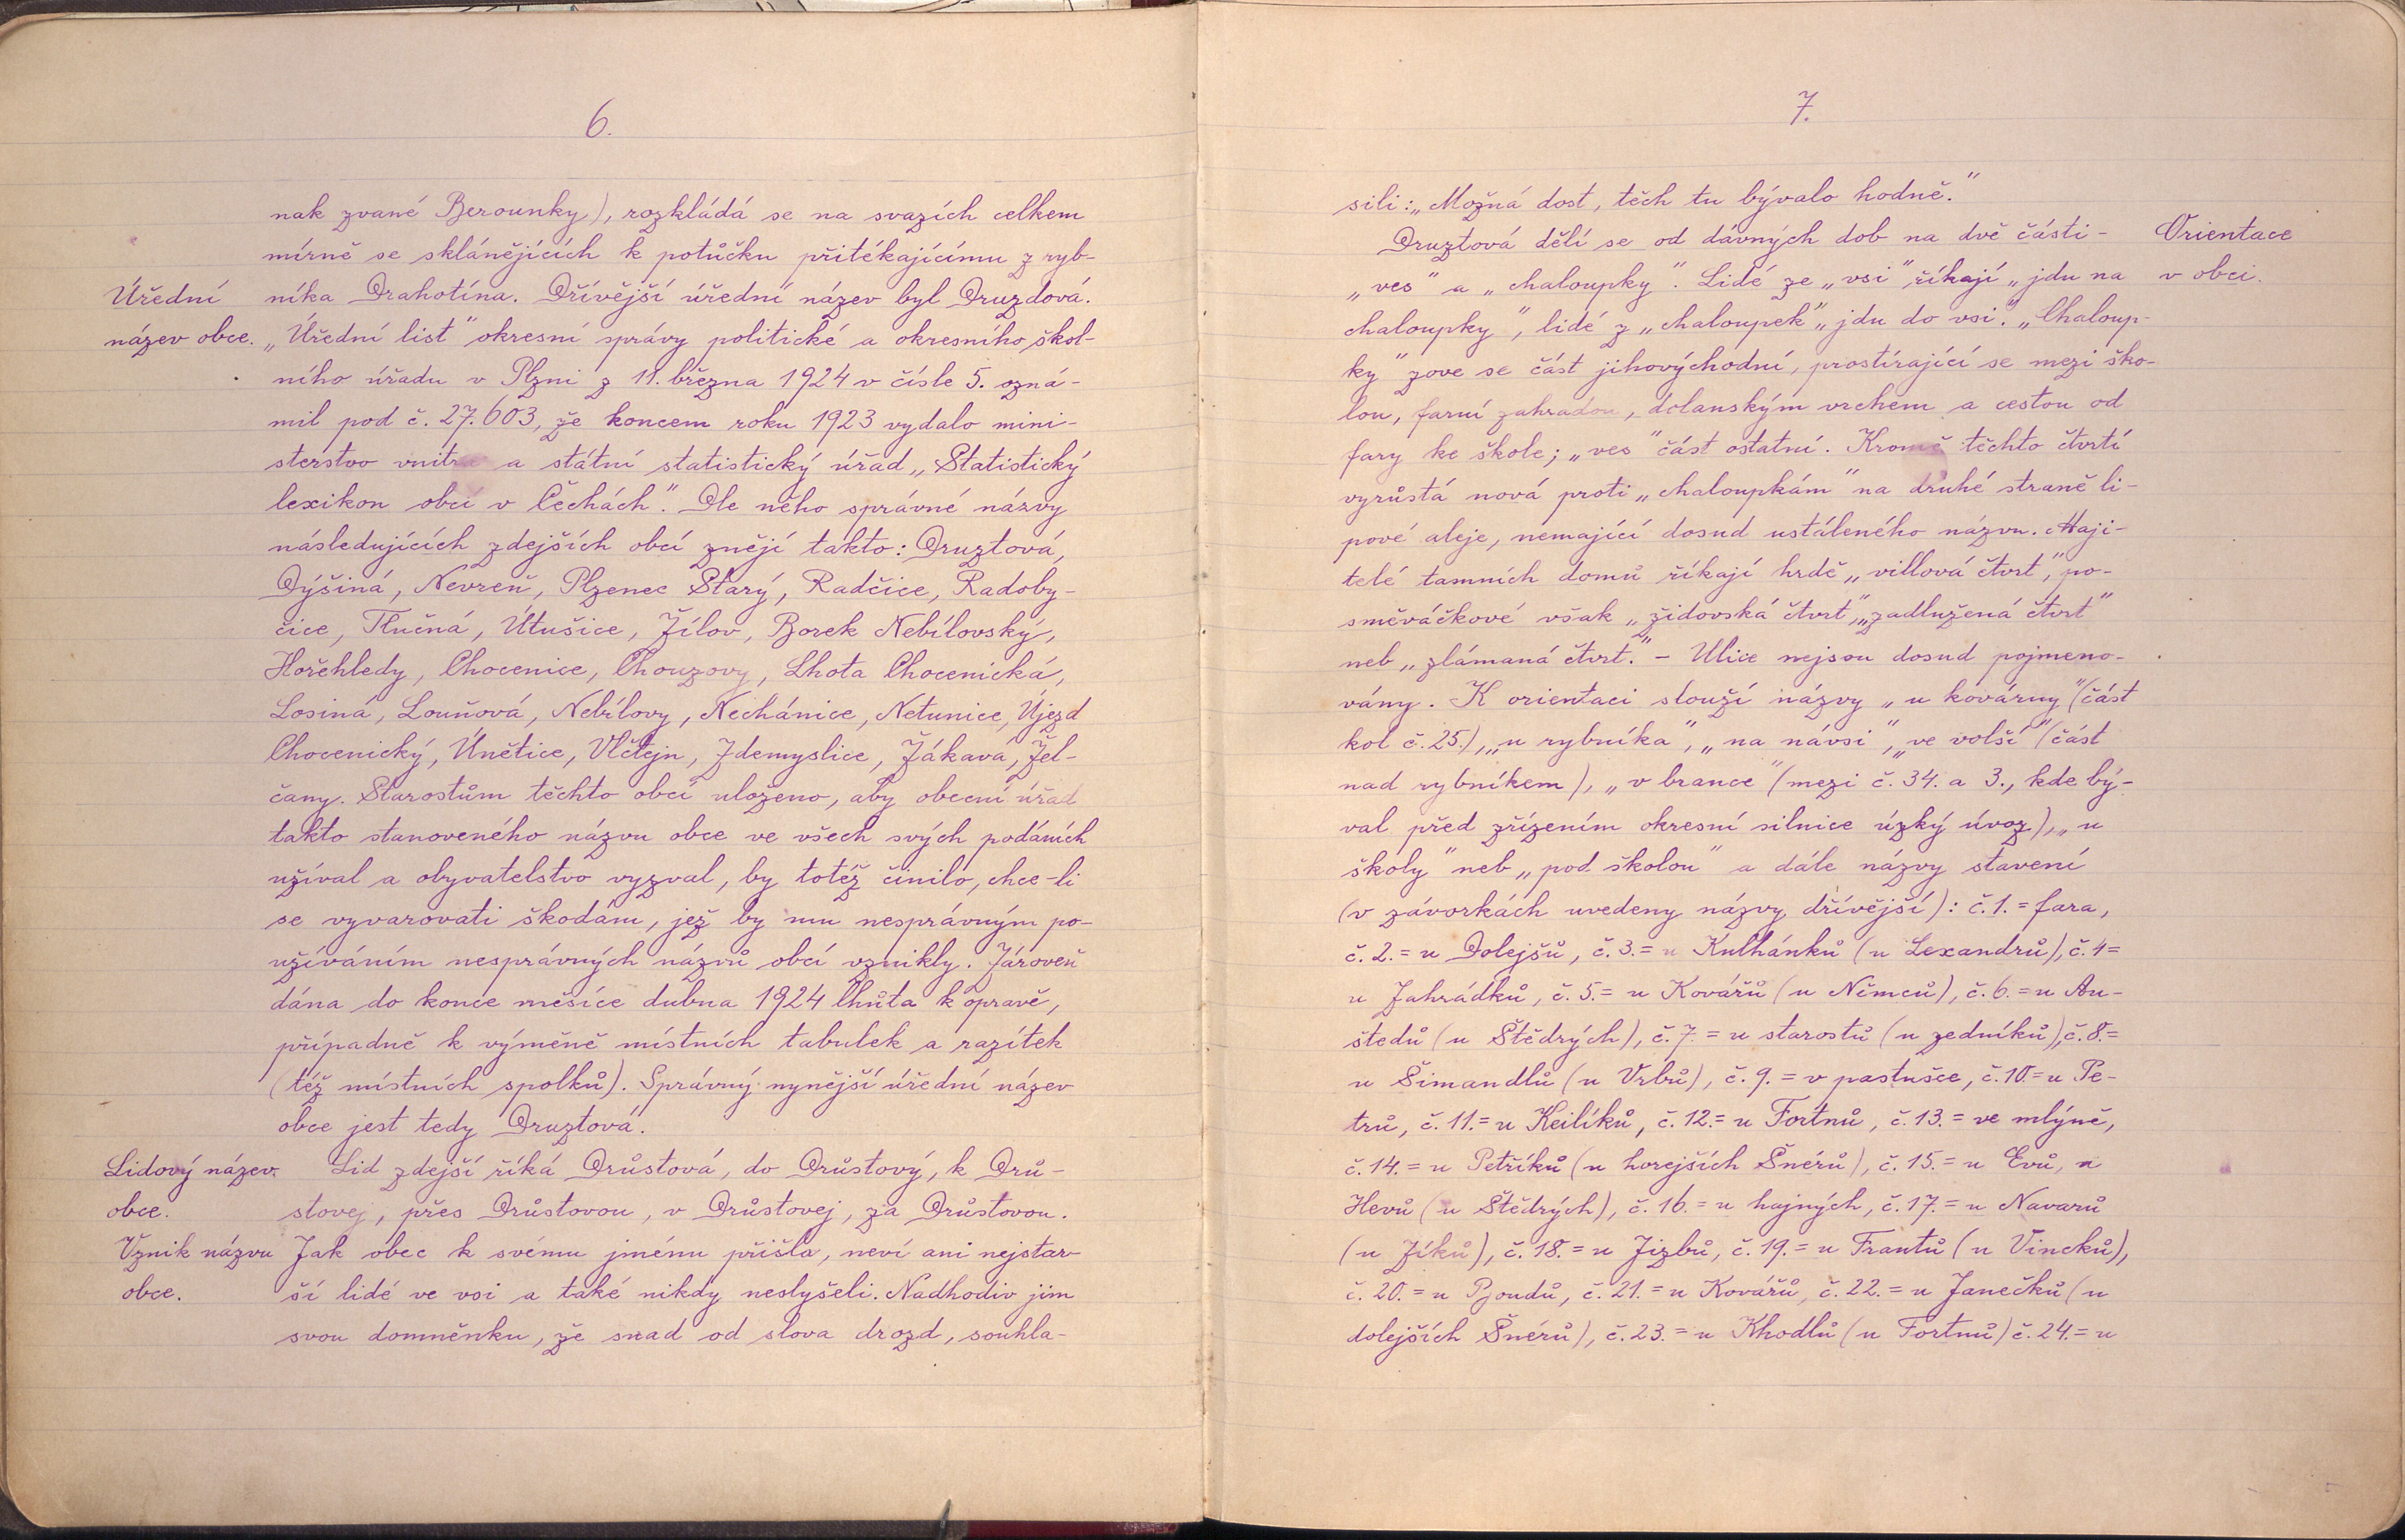 6.
nak zvané Berounky), rozkládá se na svazích celkem
mírně se sklánějících k potůčku přitékajícímu z ryb-
Úřední
níka Drahotína. Dřívější úřední název byl Druzdová.
název obce.
„Úřední list" okresní správy politické a okresního škol-
ního úřadu v Plzni z 11. března 1924 v čísle 5. ozná-
mil pod č. 27.603, že koncem roku 1923 vydalo mini-
sterstvo vnitra a státní statistický úřad „Statistický
lexikon obcí v Čechách". Dle něho správné názvy
následujících zdejších obcí znějí takto: Druztová,
Dýšiná, Nevreň, Plzenec Starý, Radčice, Radoby-
čice, Tlučná, Útušice, Žilov, Borek Nebílovský,
Hořehledy, Chocenice, Chouzovy, Lhota Chocenická,
Losiná, Louňová, Nebílovy, Nechánice, Netunice, Újezd
Chocenický, Únětice, Vlčtejn, Zdemyslice, Žákavá, Žel-
čany. Starostům těchto obcí uloženo, aby obecní úřad
takto stanoveného názvu obce ve všech svých podáních
užíval a obyvatelstvo vyzval, by totéž činilo, chce-li
se vyvarovati škodám, jež by mu nesprávným po-
užíváním nesprávných názvů obcí vznikly. Zároveň
dána do konce měsíce dubna 1924 lhůta k opravě,
případně k výměně místních tabulek a razítek
(též místních spolků). Správný nynější úřední název
obce jest tedy Druztová.
Lidový název
Lid zdejší říká Drůstová, do Drůstový, k Drů-
obce.
stovej, přes Drůstovou, v Drůstovej, za Drůstovou.
Vznik názvu
Jak obec k svému jménu přišla, neví ani nejstar-
obce.
ší lidé ve vsi a také nikdy neslyšeli. Nadhodiv jim
svou domněnku, že snad od slova drozd, souhla-
7.
sili: „Možná dost, těch tu bývalo hodně."
Druztová dělí se od dávných dob na dvě části -
Orientace
„ves" a „chaloupky". Lidé ze „vsi" říkají „jdu na
v obci.
chaloupky", lidé z „chaloupek" „jdu do vsi". „Chaloup-
ky" zove se část jihovýchodní, prostírající se mezi ško-
lou, farní zahradou, dolanským vrchem a cestou od
fary ke škole; „ves" část ostatní. Kromě těchto čtvrtí
vyrůstá nová proti „chaloupkám" na druhé straně li-
pové aleje, nemající dosud ustáleného názvu. Maji-
telé tamních domů říkají hrdě „villová čtvrt", po-
směváčkové však „židovská čtvrt", „zadlužená čtvrt"
neb „zlámaná čtvrt." - Ulice nejsou dosud pojmeno-
vány. K orientaci slouží názvy „u kovárny" (část
kol č. 25.), „u rybníka", „na návsi", „ve volší" (část
nad rybníkem), „v brance" (mezi č. 34. a 3., kde bý-
val před zřízením okresní silnice úzký úvoz), „u
školy" neb „pod školou" a dále názvy stavení
(v závorkách uvedeny názvy dřívější): č. 1. = fara,
č. 2. = u Dolejšů, č. 3. = u Kulhánků (u Lexandrů), č. 4 =
u Zahrádků, č. 5. = u Kovářů (u Němců), č. 6. = u Au-
štedů (u Štědrých), č. 7. = u starostů (u zedníků), č. 8. =
u Šimandlů (u Vrbů), č. 9. = v pastušce, č. 10. = u Pe-
trů, č. 11. = u Keilíků, č. 12. = u Fortnů, č. 13. = ve mlýně,
č. 14. = u Petříků (u horejších Šnérů), č. 15. = u Evů, u
Hevů (u Štědrých), č. 16. = u hajných, č. 17. = u Navarů
(u Zíků), č. 18. = u Jizbů, č. 19. = u Frantů (u Vincků),
č. 20. = u Boudů, č. 21. = u Kovářů, č. 22. = u Janečků (u
dolejších Šnérů), č. 23. = u Khodlů (u Fortnů) č. 24. = u